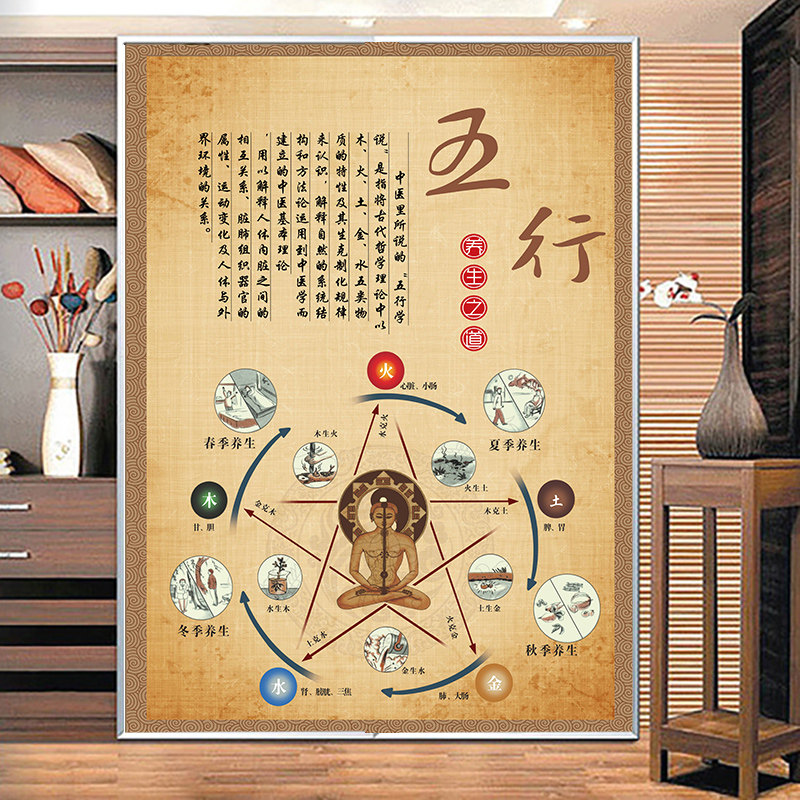 五行
养生之道
中医里所说的“五行学
说”是指将古代哲学理论中以
木、火、土、金、水五类物
质的特性及其生克制化规律
来认识，解释自然的系统结
构和方法论运用到中医学而
建立的中医基本理论
，用以解释人体内脏之间的
相互关系、脏腑组织器官的
属性、运动变化及人体与外
界环境的关系。
火
心脏、小肠
春季养生
夏季养生
木生火
水克火
火生土
木
甘、胆
金克木
木克土
土
脾、胃
水生木
土生金
冬季养生
秋季养生
土克水
火克金
金生水
水
肾、膀胱、三焦
肺、大肠
金